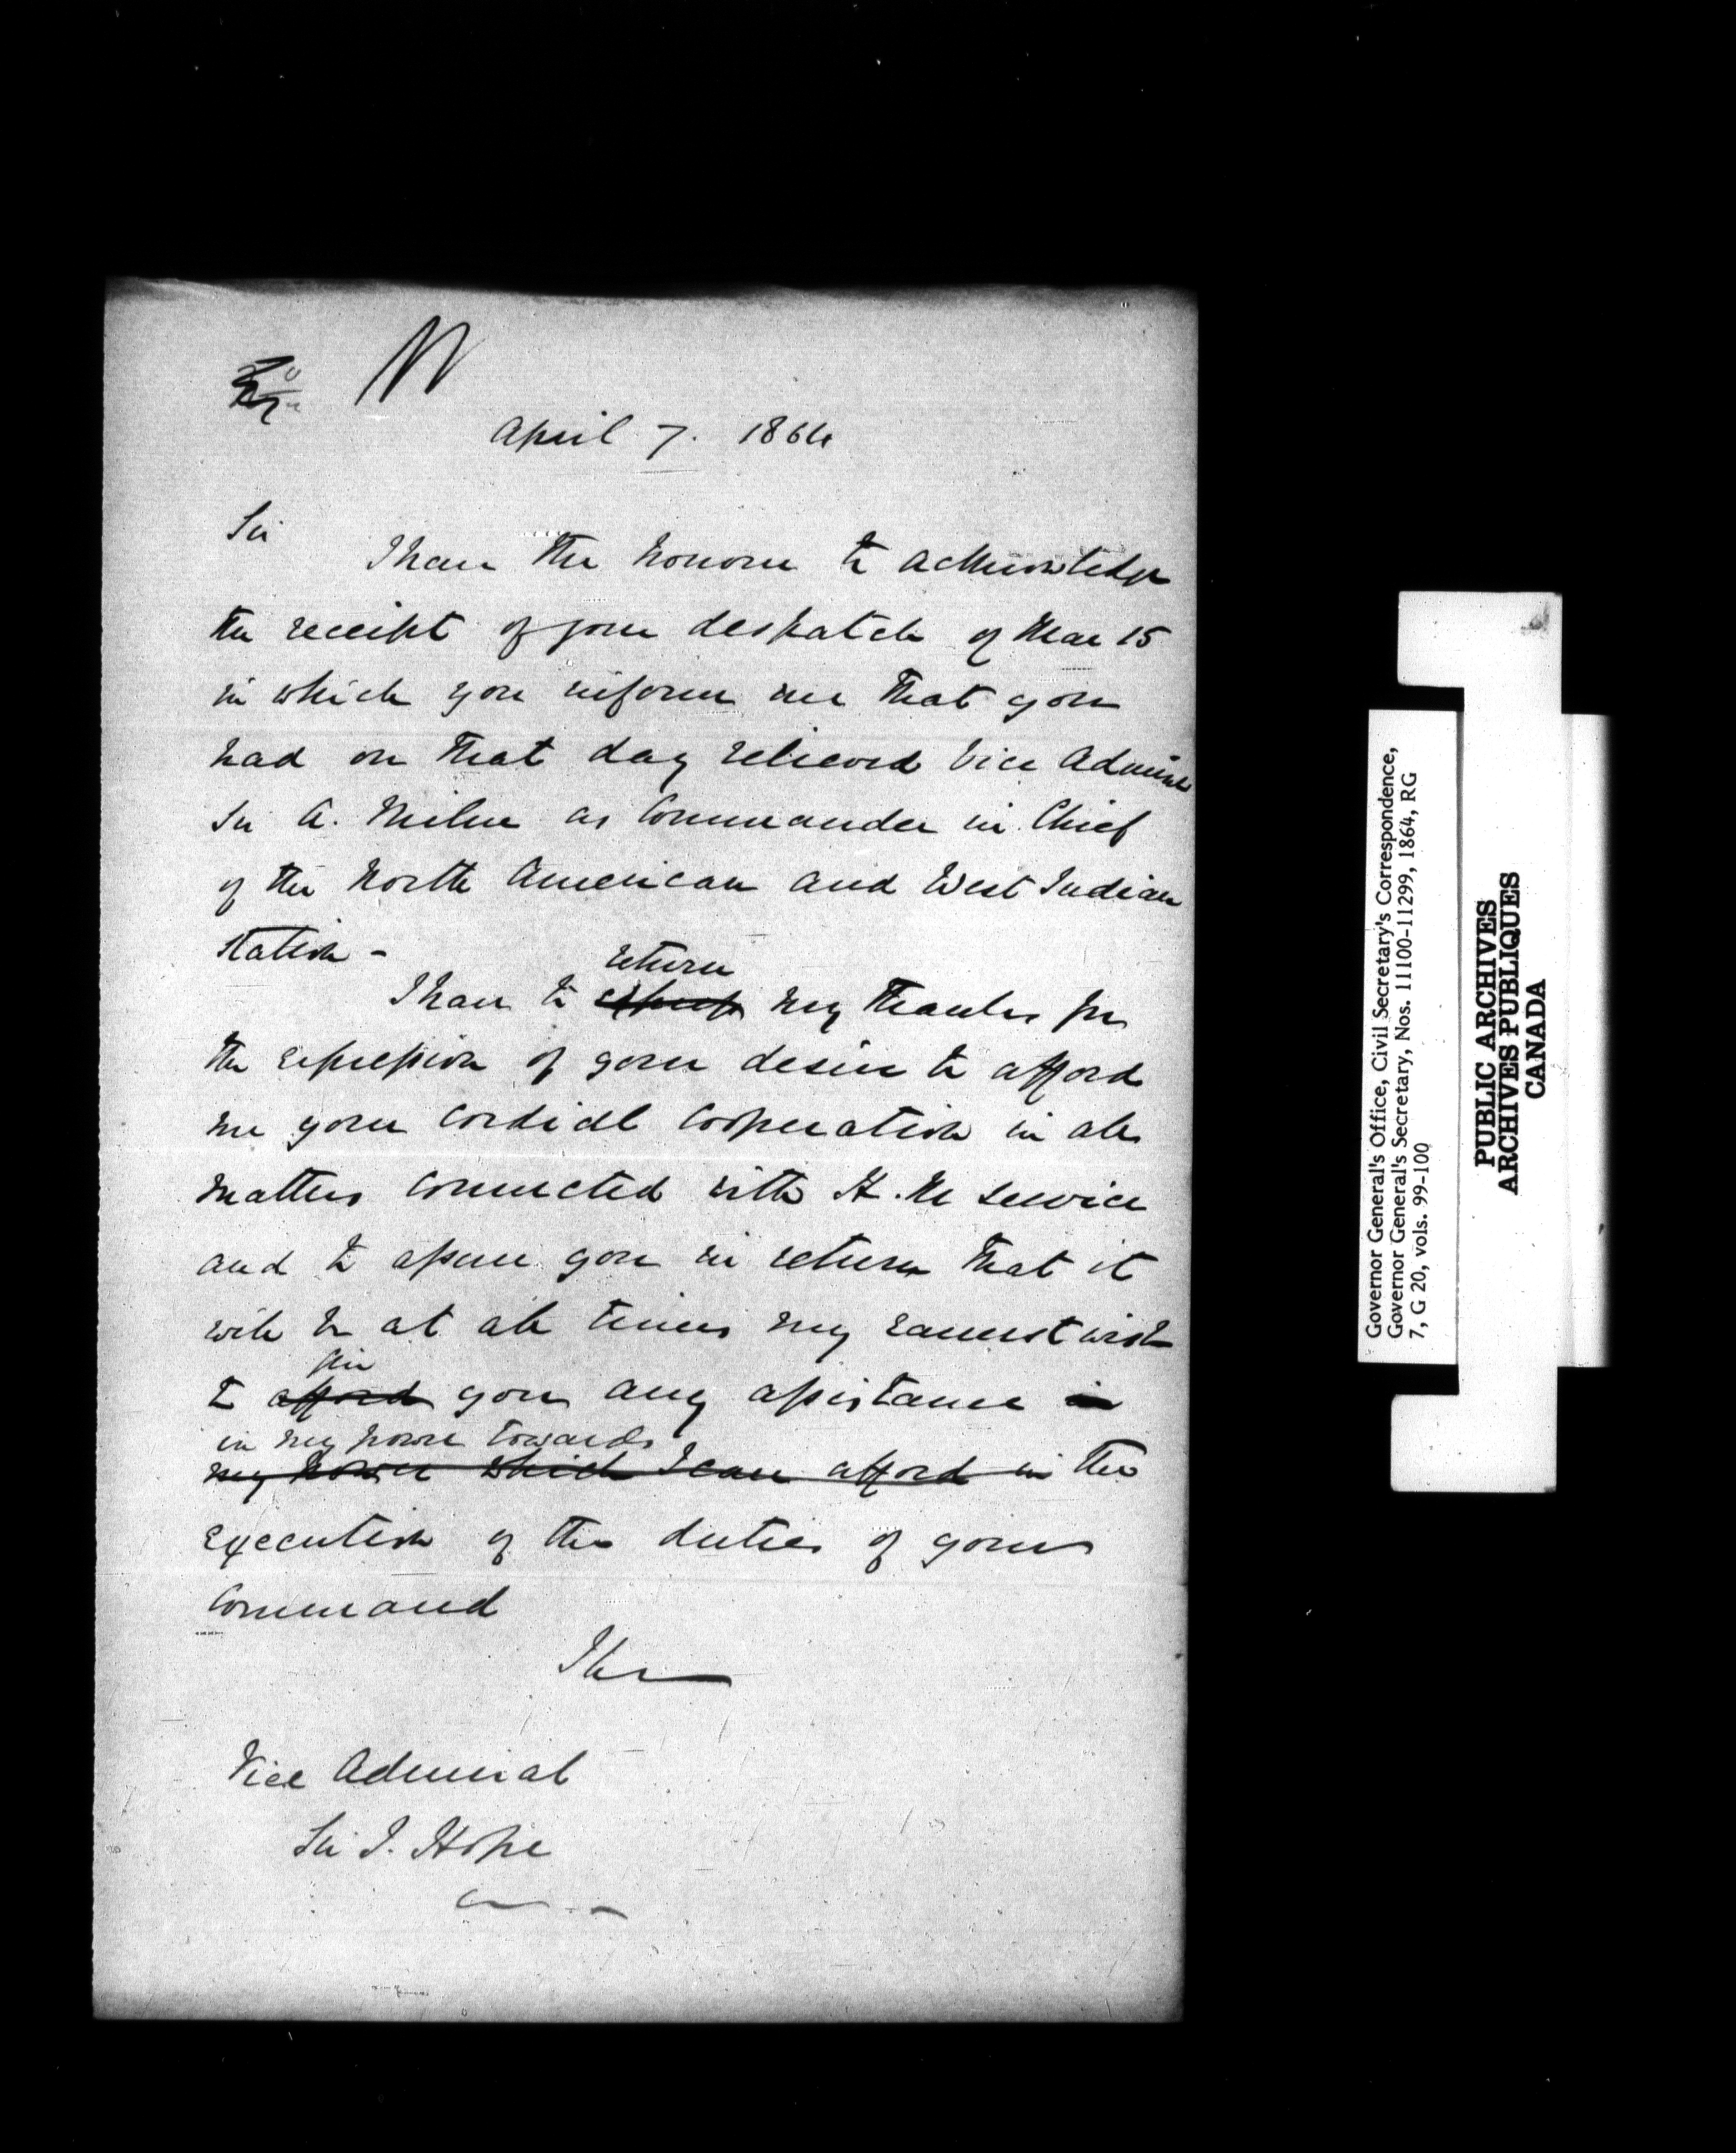 April 7. 1864
Sir
I have the honour to acknowledge
the receipt of your despatch of Mar 15
in which you inform me that you
had on that day relieved Vice Admiral
Sir A. Milne as Commander in Chief
of the North American and West Indian
Station -
return
I have to express my thanks for
the expression of your desire to afford
me your cordial cooperation in all
matters connected with H. M service
and to assure you in return that it
will be at all times my earnest wish
give
to afford you any assistance in
in my power towards
my power which I can afford in the
execution of the duties of your
Command
I have
Vice Admiral
Sir J. Hope
Governor General's Office, Civil Secretary's Correspondence,
Governor General's Secretary, Nos. 11100-11299, 1864, RG
7, G 20, vols. 99-100
PUBLIC ARCHIVES
ARCHIVES PUBLIQUES
CANADA